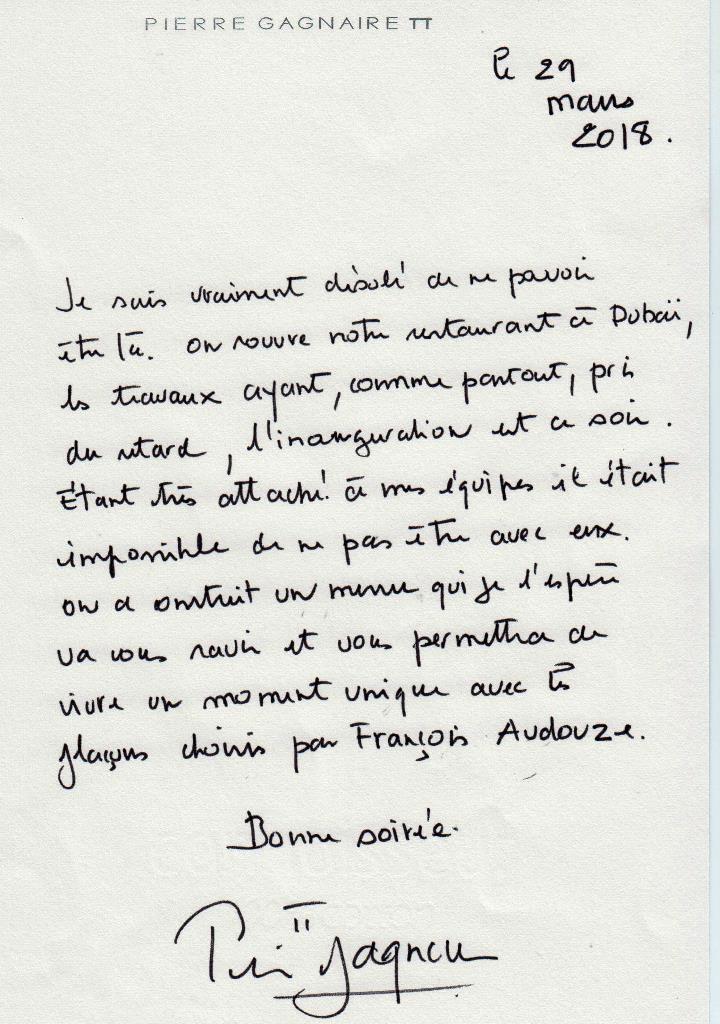 PIERRE GAGNAIRE
le 29
mars
2018.
Je suis vraiment désolé de ne pouvoir
être là. On rouvre notre restaurant à Dubaï,
les travaux ayant, comme partout, pris
du retard, l'inauguration est ce soir.
Étant très attaché à mes équipes il était
impossible de ne pas être avec eux.
On a construit un menu qui je l'espère
va vous ravir et vous permettra de
vivre un moment unique avec les
flacons choisis par François Audouze.
Bonne soirée.
Pierre Gagnaire